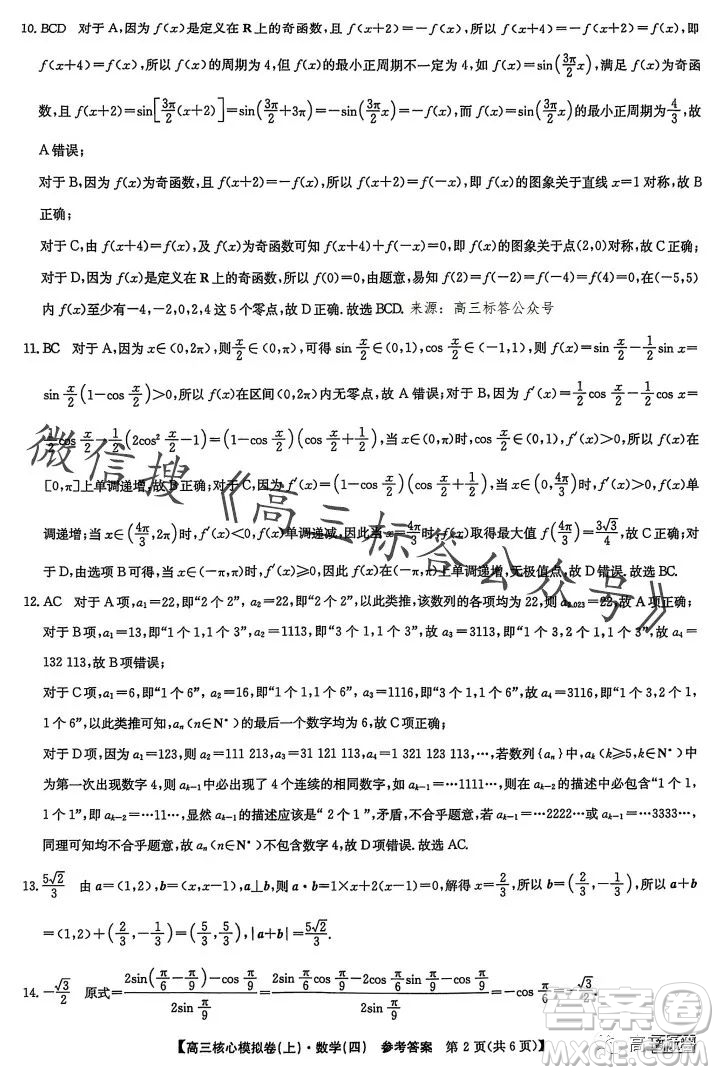 10. BCD 对于 A,因为 f(x)是定义在 R 上的奇函数,且 f(x+2)=-f(x),所以 f(x+4)=-f(x+2)=f(x),即
f(x+4)=f(x),所以 f(x)的周期为 4,但 f(x)的最小正周期不一定为 4,如 f(x)=sin(3π/2 x),满足 f(x)为奇函
数,且 f(x+2)=sin[3π/2(x+2)]=sin(3π/2 x+3π)=-sin(3π/2 x)=-f(x),而 f(x)=sin(3π/2 x)的最小正周期为4/3,故
A 错误;
对于 B,因为 f(x)为奇函数,且 f(x+2)=-f(x),所以 f(x+2)=-f(x)=f(-x),即 f(x)的图象关于直线 x=1 对称,故 B
正确;
对于 C,由 f(x+4)=f(x),及 f(x)为奇函数可知 f(x+4)+f(-x)=0,即 f(x)的图象关于点(2,0)对称,故 C 正确;
对于 D,因为 f(x)是定义在 R 上的奇函数,所以 f(0)=0,由题意,易知 f(-4)=f(-2)=f(2)=f(4)=0,在(-5,5)
内 f(x)至少有-4,-2,0,2,4 这 5 个零点,故 D 正确.故选 BCD. 来源:高三标答公众号
11. BC 对于 A,因为 x∈(0,2π),则x/2∈(0,π),可得 sin x/2>0,cos x/2∈(-1,1),所以 f(x)=sin x/2-1/2 sin x=
sin x/2(1-cos x/2)>0,所以 f(x)在区间(0,2π)内无零点,故 A 错误;对于 B,因为 f′(x)=1/2 cos x/2-1/2 cos x=
1/2 cos x/2-1/2(2cos² x/2-1)=(1-cos x/2)(cos x/2+1/2),当 x∈(0,π)时,cos x/2>0,f′(x)>0,所以 f(x)在
[0,π]上单调递增,故 B 正确;对于 C,因为 f′(x)=(1-cos x/2)(cos x/2+1/2),当 x∈(0,4π/3)时,f′(x)>0,f(x)单
调递增;当 x∈(4π/3,2π)时,f′(x)<0,f(x)单调递减,因此当 x=4π/3时,f(x)取得最大值 f(4π/3)=3√3/4,故 C 正确;对
于 D,由选项 B 可知,因为 f′(x)>0,因此 f(x)在(-π,π)上单调递增,无极值点,故 D 错误.故选 BC.
12. AC 对于 A 项,a₁=22,即“2 个 2”,a₂=22,即“2 个 2”,以此类推,该数列的各项均为 22,则 a₂ ₀₂₃=22,故 A 项正确;
对于 B 项,a₁=13,即“1 个 1,1 个 3”,a₂=1113,即“3 个 1,1 个 3”,故 a₃=3113,即“1 个 3,2 个 1,1 个 3”,故 a₄=
132 113,故 B 项错误;
对于 C 项,a₁=6,即“1 个 6”,a₂=16,即“1 个 1,1 个 6”,a₃=1116,即“3 个 1,1 个 6”,故 a₄=3116,即“1 个 3,2 个 1,
1 个 6”,以此类推可知,aₙ(n∈N*)的最后一个数字均为 6,故 C 项正确;
对于 D 项,因为 a₁=123,则 a₂=111 213,a₃=31 121 113,a₄=1 321 123 113,…,若数列{aₙ}中,aₖ(k≥5,k∈N*)
为第一次出现数字 4,则 aₖ₋₁中必出现了 4 个连续的相同数字,如 aₖ₋₁=…1111…,则在 aₖ₋₂的描述中必包含“1 个 1,
1 个 1”,即 aₖ₋₂=…11…,显然 aₖ₋₁的描述应该是“2 个 1”,矛盾,不合乎题意,若 aₖ₋₁=…2222…或 aₖ₋₁=…3333…,
同理可知均不合乎题意,故 aₙ(n∈N*)不包含数字 4,故 D 项错误.故选 AC.
13. 5√2/3 由 a=(1,2),b=(x,x-1),a⊥b,则 a·b=1×x+2(x-1)=0,解得 x=2/3,所以 b=(2/3,-1/3),所以 a+b
=(1,2)+(2/3,-1/3)=(5/3,5/3),|a+b|=5√2/3.
14. -√3/2 原式=(2sin(π/6-π/9)-cos π/9)/(2sin π/9)=(2sin π/6 cos π/9-2cos π/6 sin π/9-cos π/9)/(2sin π/9)=-cos π/6=-√3/2.
【高三核心模拟卷(上)·数学(四) 参考答案 第 2 页(共 6 页)】
微信搜《高三标答公众号》
答案卷